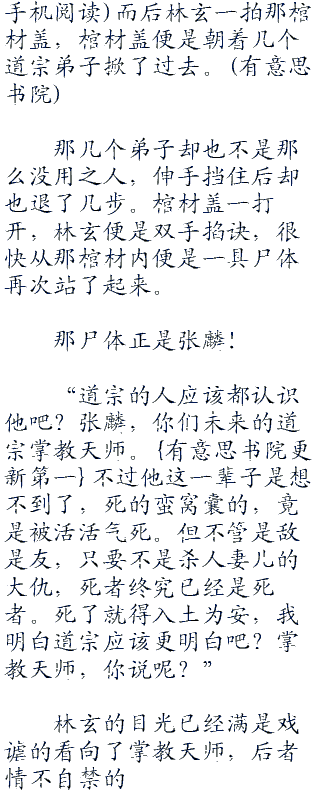 手机阅读)而后林玄一拍那棺
材盖，棺材盖便是朝着几个
道宗弟子掀了过去。(有意思
书院)
那几个弟子却也不是那
么没用之人，伸手挡住后却
也退了几步。棺材盖一打
开，林玄便是双手掐诀，很
快从那棺材内便是一具尸体
再次站了起来。
那尸体正是张麟！
“道宗的人应该都认识
他吧？张麟，你们未来的道
宗掌教天师。{有意思书院更
新第一}不过他这一辈子是想
不到了，死的蛮窝囊的，竟
是被活活气死。但不管是敌
是友，只要不是杀人妻儿的
大仇，死者终究已经是死
者。死了就得入土为安，我
明白道宗应该更明白吧？掌
教天师，你说呢？”
林玄的目光已经满是戏
谑的看向了掌教天师，后者
情不自禁的